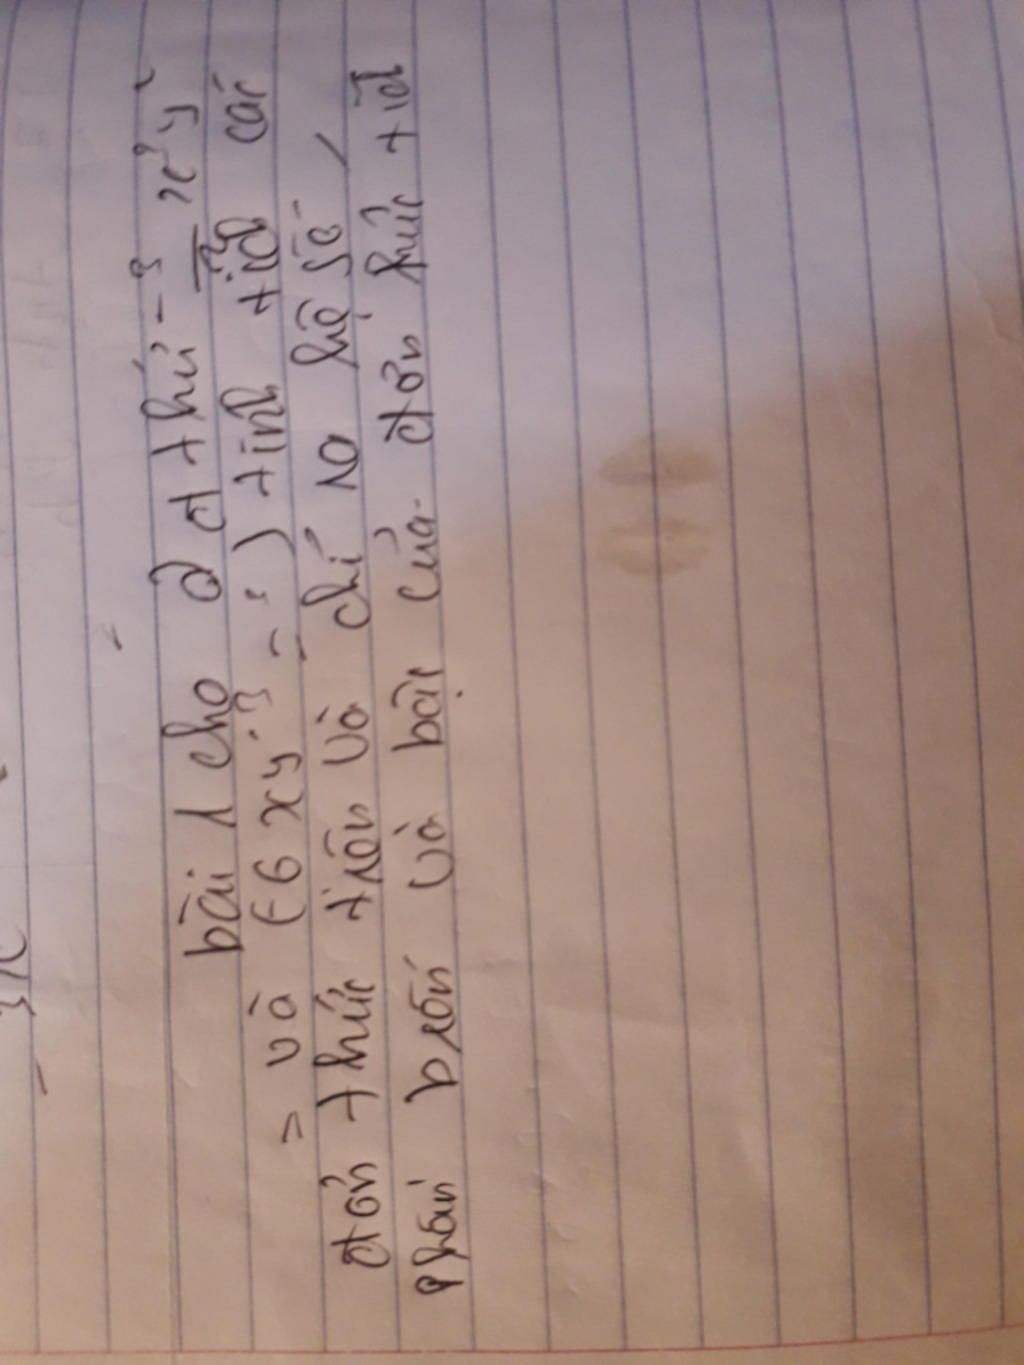 bài 1 cho 2 đ thứ -3/2 x²y²
= và (-6 xy³ - ²) tính tích các
đơn thức trên và chỉ rõ hệ số,
phần biến và bậc của đơn thức tích